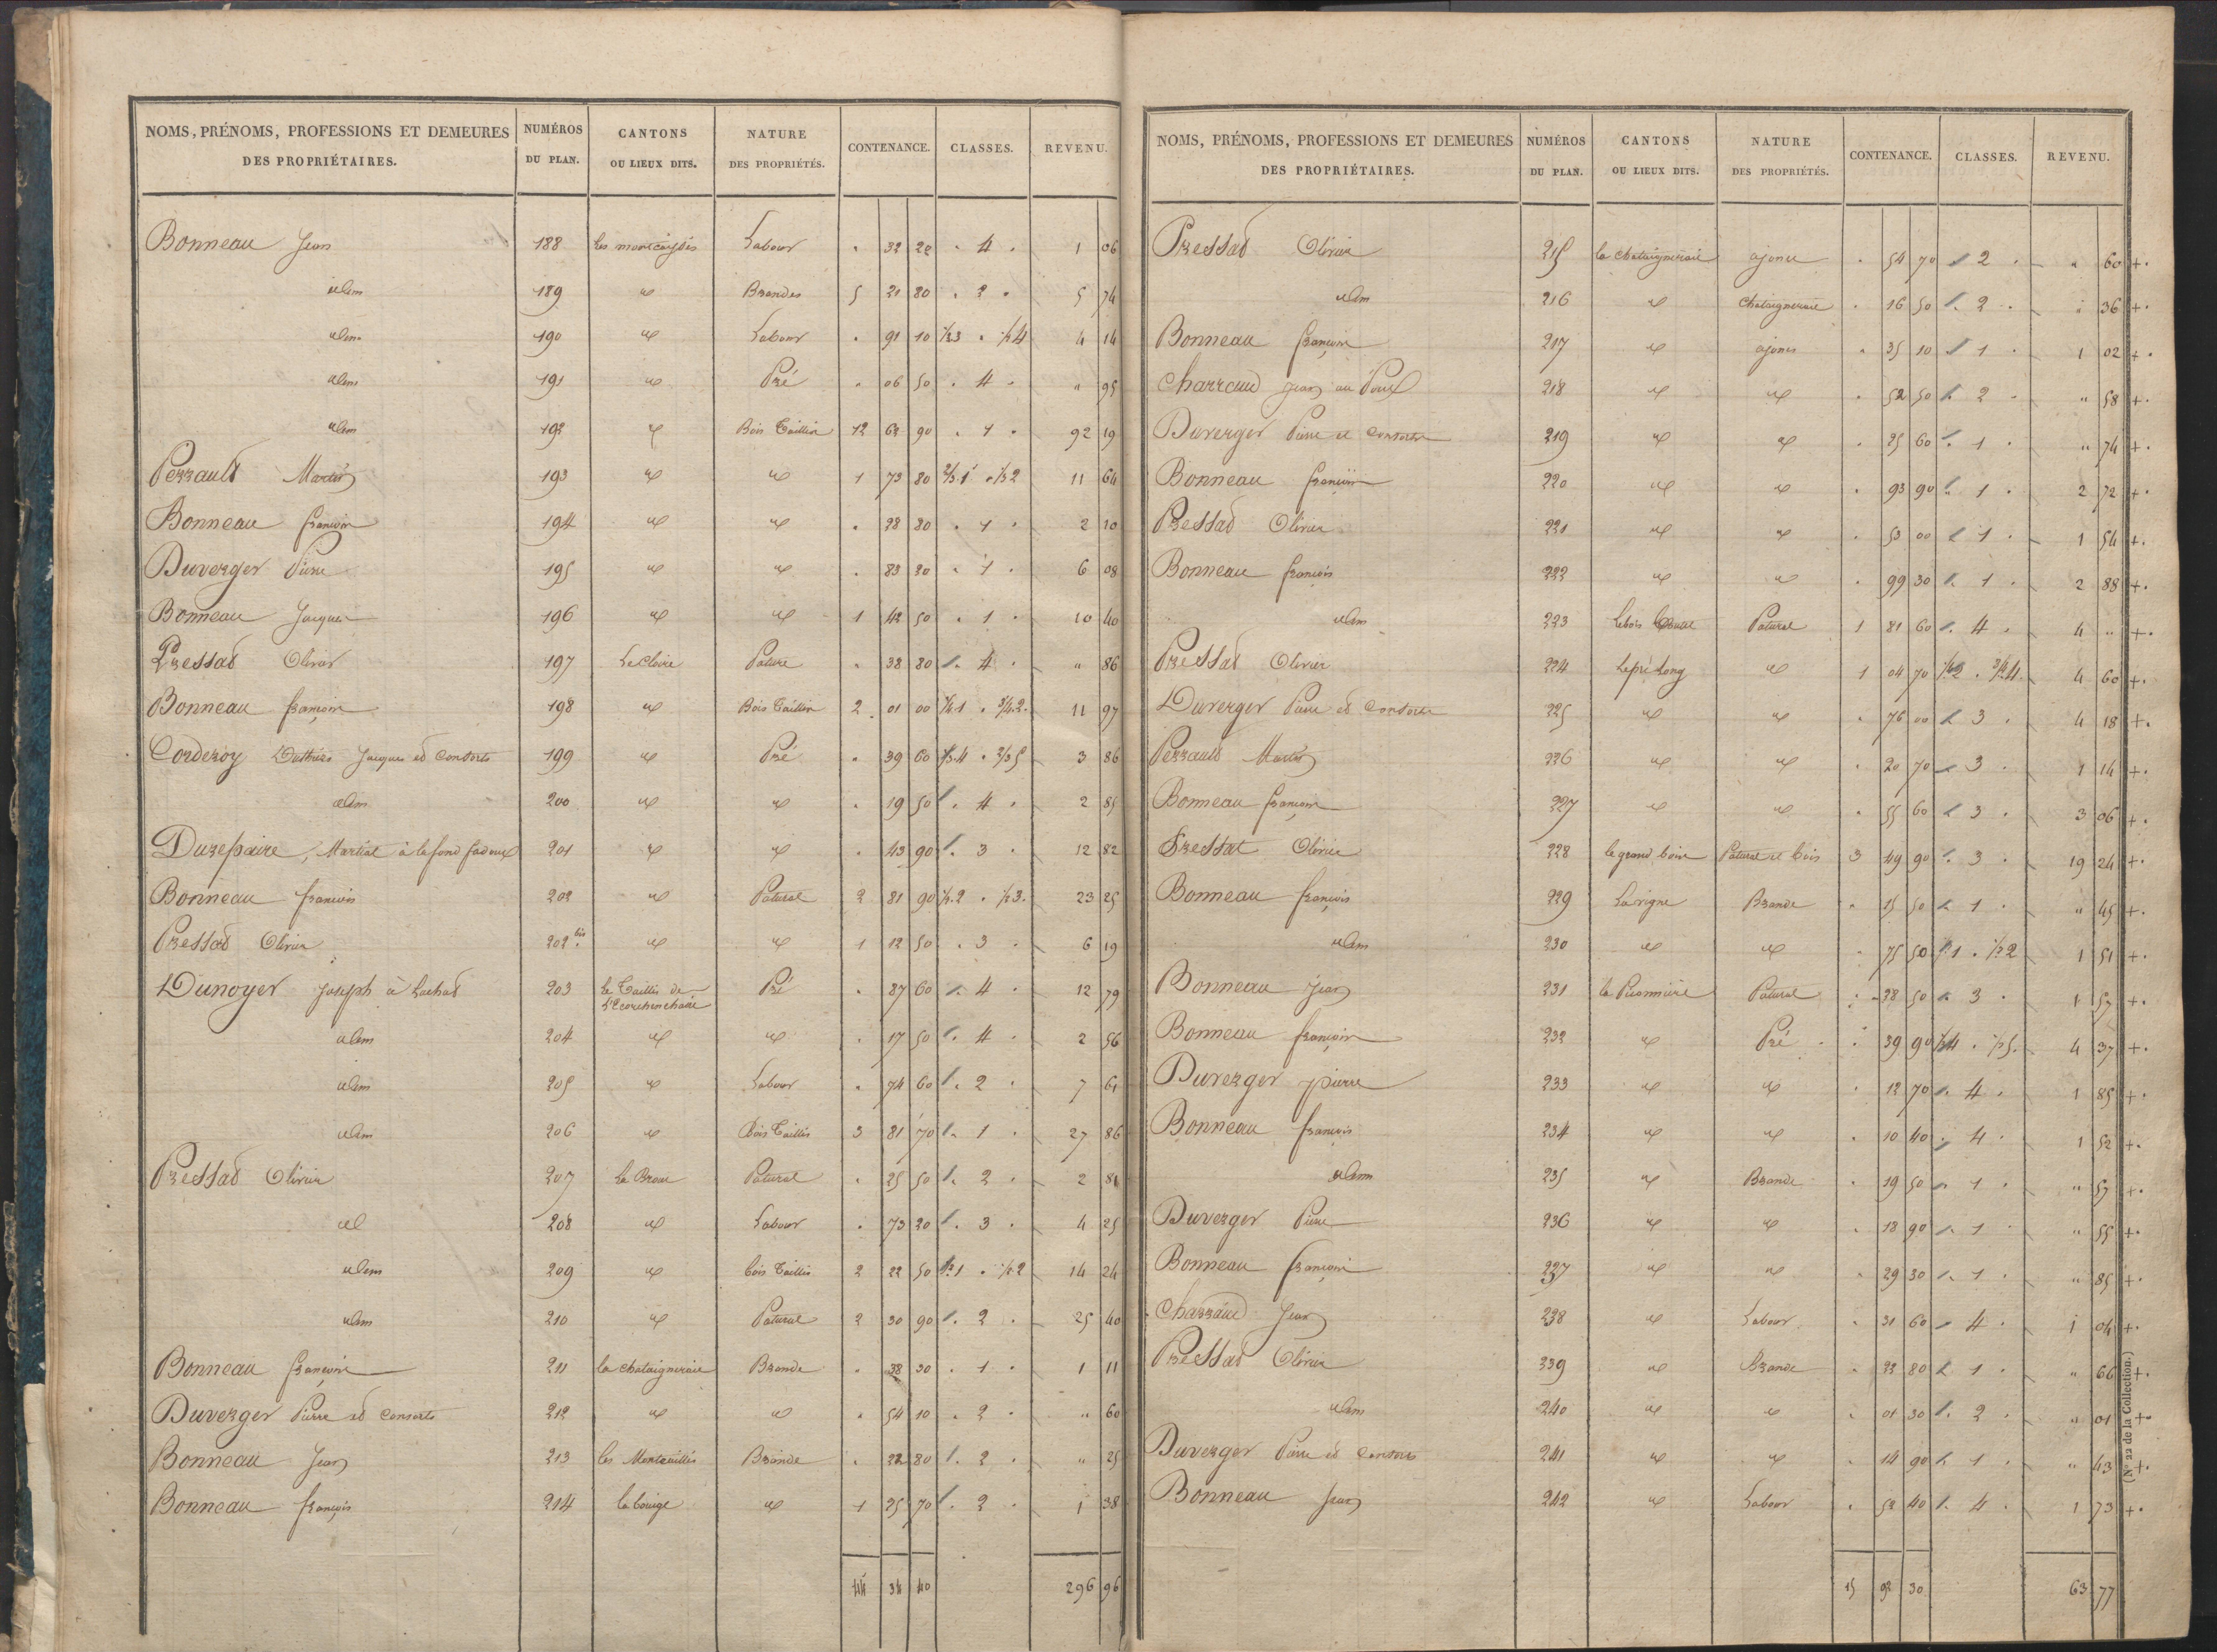 NOMS, PRÉNOMS, PROFESSIONS ET DEMEURES DES PROPRIÉTAIRES. NUMÉROS DU PLAN. CANTONS OU LIEUX DITS. NATURE DES PROPRIÉTÉS. CONTENANCE. CLASSES. REVENU.
Bonneau Jean 188 Labour " 32 20 " 4 " 1 06
idem 189 id Brandes 5 21 80 " 2 " 5 74
idem 190 id Labour " 91 10 1/2 3 " 1/2 4 4 14
idem 191 id Pré " 06 50 " 4 " " 95
idem 192 id Bois Taillis 12 63 90 " 1 " 92 19
Perrault Martin 193 id id 1 73 80 2/3 1 " 1/3 2 11 64
Bonneau françois 194 id id " 28 80 " 1 " 2 10
Duverger Pierre 195 id id " 83 20 " 1 " 6 08
Bonneau Jacques 196 id id 1 42 50 " 1 " 10 40
Pressat Olivier 197 Pature " 38 80 " 4 " " 86
Bonneau françois 198 id Bois Taillis 2 01 00 1/4 1 " 3/4 2 11 97
Corderoy Duthiers Jacques et Consorts 199 id Pré " 39 60 1/3 4 " 2/3 5 3 86
idem 200 id id " 19 50 " 4 " 2 85
Durepaire, Martial à la fond 201 id id " 43 90 " 3 " 12 82
Bonneau francois 202 id Patural 2 81 90 1/2 2 " 1/2 3 23 25
Pressat Olivier 202 bis id id 1 12 50 " 3 " 6 19
Dunoyer Joseph à Lachat 203 le Taillis de Pré " 87 60 " 4 " 12 79
idem 204 id id " 17 50 " 4 " 2 56
idem 205 id Labour " 74 60 " 2 " 7 61
idem 206 id Bois Taillis 3 81 70 " 1 " 27 86
Pressat Olivier 207 Patural " 25 50 " 2 " 2 81
id 208 id Labour " 73 20 " 3 " 4 25
idem 209 id bois Taillis 2 22 50 1/2 1 " 1/2 2 14 24
idem 210 id Patural 2 30 90 " 2 " 25 40
Bonneau françois 211 la chataigneraie Brande " 38 30 " 1 " 1 11
Duverger Pierre et Consorts 212 id id " 54 10 " 2 " " 60
Bonneau Jean 213 Brande " 22 80 " 2 " " 25
Bonneau françois 214 la bouige id 1 25 70 " 2 " 1 38
44 34 40 296 96
NOMS, PRÉNOMS, PROFESSIONS ET DEMEURES DES PROPRIÉTAIRES. NUMÉROS DU PLAN. CANTONS OU LIEUX DITS. NATURE DES PROPRIÉTÉS. CONTENANCE. CLASSES. REVENU.
Pressat Olivier 215 la chataigneraie ajoncs " 54 70 " 2 " " 60 +
idem 216 id chataigneraie " 16 50 " 2 " " 36 +
Bonneau françois 217 id ajoncs " 35 10 " 1 " 1 02 +
Charraud Jean 218 id id " 52 50 " 2 " " 58 +
Duverger Pierre et Consorts 219 id id " 25 60 " 1 " " 74 +
Bonneau françois 220 id id " 93 90 " 1 " 2 72 +
Pressat Olivier 221 id id " 53 00 " 1 " 1 54 +
Bonneau françois 222 id id " 99 30 " 1 " 2 88 +
idem 223 Patural 1 81 60 " 4 " 4 " +
Pressat Olivier 224 Le pré Long id 1 04 70 1/4 3/4 4 4 60 +
Duverger Pierre et Consorts 225 id id " 76 00 " 3 " 4 18 +
Perrault Martin 226 id id " 20 70 " 3 " 1 14 +
Bonneau françois 227 id id " 55 60 " 3 " 3 06 +
Pressat Olivier 228 le grand bois Patural et bois 3 49 90 " 3 " 19 24 +
Bonneau françois 229 La vigne Brande " 15 50 " 1 " " 45 +
idem 230 id id " 75 50 1/2 1 " 1/2 2 1 51 +
Bonneau Jean 231 Patural " 28 50 " 3 " 1 57 +
Bonneau françois 232 id Pré " 39 90 1/2 4 " 1/2 5 4 37 +
Duverger pierre 233 id id " 12 70 " 4 " 1 85 +
Bonneau françois 234 id id " 10 40 " 4 " 1 52 +
idem 235 id Brande " 19 50 " 1 " " 57 +
Duverger Pierre 236 id id " 18 90 " 1 " " 55 +
Bonneau françois 237 id id " 29 30 " 1 " " 85 +
Charraud Jean 238 id Labour " 31 60 " 4 " 1 04 +
Pressat Olivier 239 id Brande " 22 80 " 1 " " 66 +
idem 240 id id " 01 30 " 2 " " 01 +
Duverger Pierre et Consorts 241 id id " 14 90 " 1 " " 43 +
Bonneau Jean 242 id Labour " 52 40 " 4 " 1 73 +
15 92 30 63 77
(N° 22 de la Collection.)